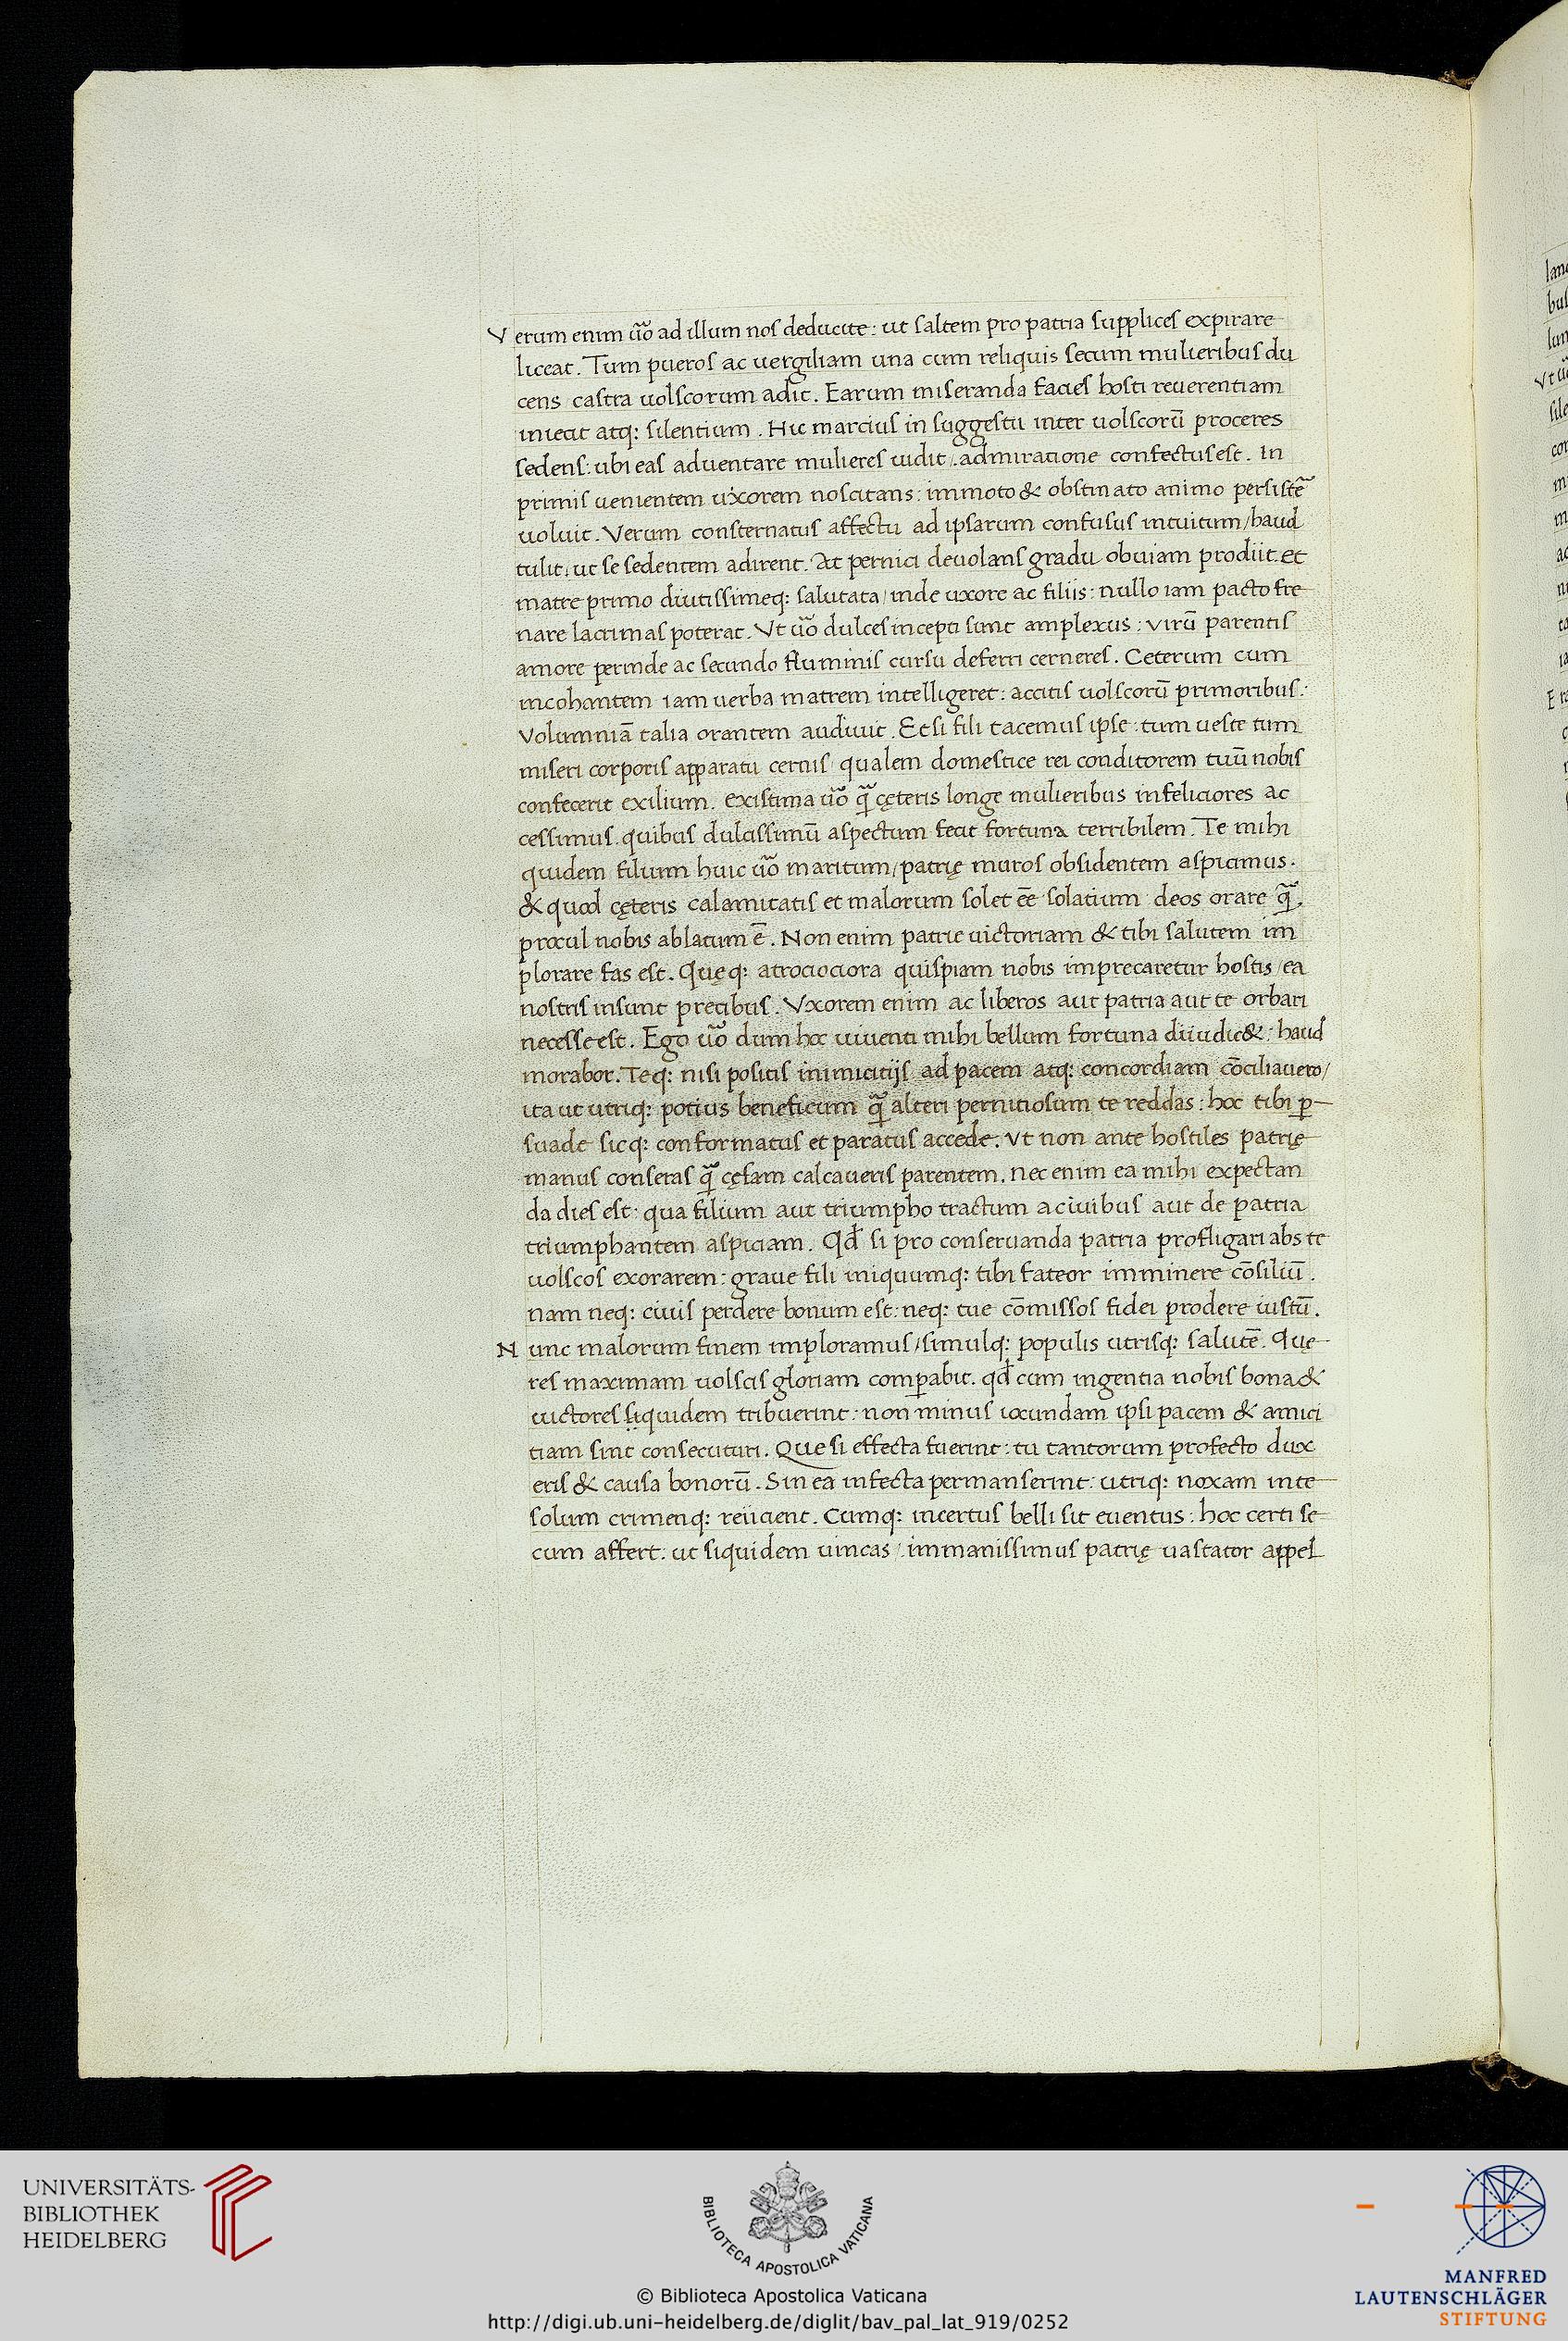 Verum enim ũo ad illum nos deducite: ut saltem pro patria supplices expirare
liceat. Tum pueros ac uergiliam una cum reliquis secum mulieribus du
cens castra uolscorum adit. Earum miseranda facies hosti reuerentiam
iniecit atq: silentium. Hic marcius in suggestu inter uolscorũ proceres
sedens: ubi eas aduentare mulieres uidit, admiratione confectus est. In
primis uenientem uxorem noscitans: immoto & obstinato animo persistẽ
uoluit. Verum consternatus affectu ad ipsarum confusus intuitum/haud
tulit: ut se sedentem adirent. At pernici deuolans gradu obuiam prodiit. Et
matre primo diutissimeq: salutata/inde uxore ac filiis: nullo iam pacto fre
nare lacrimas poterat. Vt ũo dulces incepti sunt amplexus: virũ parentis
amore perinde ac secundo fluminis cursu deferri cerneres. Ceterum cum
incohantem iam uerba matrem intelligeret: accitis uolscorũ primoribus:
Volumniã talia orantem audiuit. Etsi fili tacemus ipse: tum ueste tum
miseri corporis apparatu cernis qualem domestice rei conditorem tuũ nobis
confecerit exilium. existima ũo q̃ cęteris longe mulieribus infeliciores ac
cessimus. quibus dulcissimũ aspectum fecit fortuna terribilem. Te mihi
quidem filium huic ũo maritum/patrię muros obsidentem aspicimus.
& quod cęteris calamitatis et malorum solet eẽ solatium deos orare q̃
procul nobis ablatum ẽ. Non enim patrie uictoriam & tibi salutem im
plorare fas est. Quęq: atrociociora quispiam nobis imprecaretur hostis/ea
nostris insunt precibus. Vxorem enim ac liberos aut patria aut te orbari
necesse est. Ego ũo dum hoc uiuenti mihi bellum fortuna diiudic&: haud
morabor. Teq: nisi positis inimicitijs ad pacem atq: concordiam cõciliauero/
ita ut utriq: potius beneficum q̃ alteri pernitiosum te reddas: hoc tibi p̱
suade sicq: conformatus et paratus accede. Vt non ante hostiles patrię
manus conseras q̃ cęsam calcaueris parentem. nec enim ea mihi expectan
da dies est: qua filium aut triumpho tractum a ciuibus aut de patria
triumphantem aspiciam. Qđ si pro conseruanda patria profligari abs te
uolscos exorarem: graue fili iniquumq: tibi fateor imminere cõsiliũ.
nam neq: ciuis perdere bonum est: neq: tue cõmissos fidei prodere iustũ.
Nunc malorum finem imploramus/simulq: populis utrisq: salutẽ. Quę
res maximam uolscis gloriam comp̱abit. qđ cum ingentia nobis bona &
uictores siquidem tribuerint: non minus iocundam ipsi pacem & amici
tiam sint consecuturi. Que si effecta fuerint: tu tantorum profecto dux
eris & causa bonorũ. Sin ea infecta permanserint: utriq: noxam in te
solum crimenq: reiicient. Cumq: incertus belli sit euentus: hoc certi se
cum affert: ut siquidem uincas/immanissimus patrię uastator appel
UNIVERSITÄTS-
BIBLIOTHEK
HEIDELBERG
BIBLIOTECA APOSTOLICA VATICANA
© Biblioteca Apostolica Vaticana
http://digi.ub.uni-heidelberg.de/diglit/bav_pal_lat_919/0252
MANFRED
LAUTENSCHLÄGER
STIFTUNG